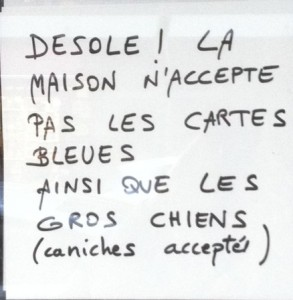 DESOLE! LA
MAISON N'ACCEPTE
PAS LES CARTES
BLEUES
AINSI QUE LES
GROS CHIENS
(caniches acceptés)